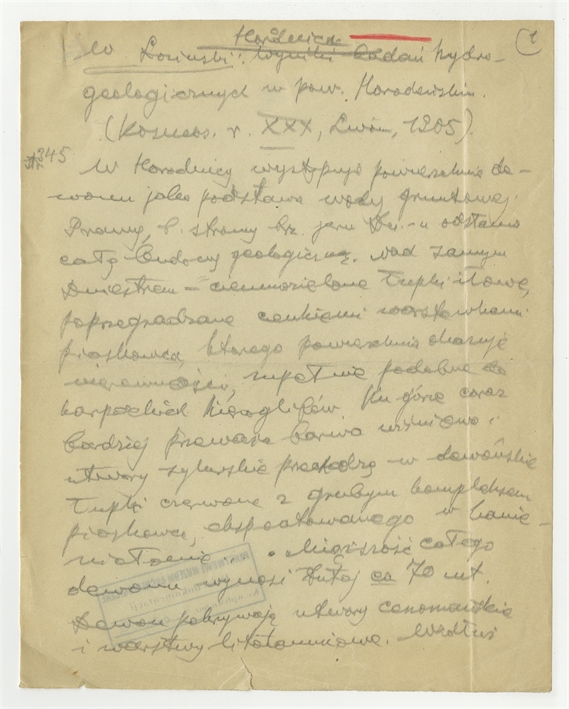 Horodnica
(1
W. Łoziński: Wyniki badań hydro-
geologicznych w pow. Horodeńskim.
(Kosmos. r. XXX, Lwów, 1905).
345
W Horodnicy występuje powierzchnia de-
wonu jako podstawa wody gruntowej.
Prawy, b. stromy brz. jaru Dn. - u odsłania
całą budowę geologiczną. nad samym
Dniestrem = ciemnozielone łupki iłowe,
poprzegradzane cienkiemi warstewkami
piaskowca, którego powierzchnia okazuje
nierówności, zupełnie podobne do
karpackich hieroglifów. Ku górze coraz
bardziej przeważa barwa wiśniowa i
utwory sylurskie przechodzą w dewońskie
łupki czerwone z grubym kompleksem
piaskowca, eksploatowanego w kamie-
niołomie. Miąższość całego
dewonu wynosi tutaj ca 70 mt.
Dewon pokrywają utwory cenomańskie
i warstwy litotamniowe. Wzdłuż